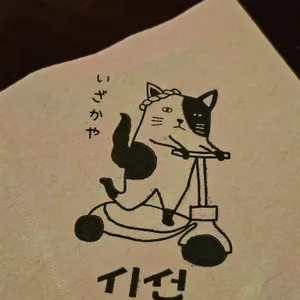 いざかや
시선